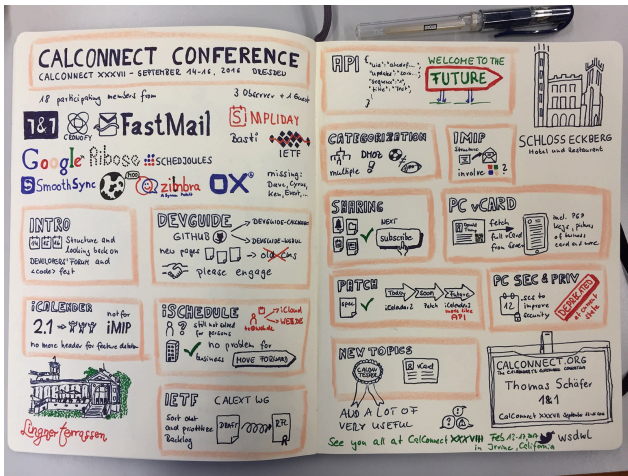 CALCONNECT CONFERENCE
CALCONNECT XXXVII - SEPTEMBER 14-16, 2016 DRESDEN
18 participating members from
3 Observer + 1 Guest
1&1
FastMail
SIMPLIDAY
Basti
IETF
Google
Ribose
SCHEDJOULES
SmoothSync
zimbra
OX
missing:
Dave, Cyrus,
Ken, Evert,...
INTRO
Structure and
looking back on
DEVELOPERS' FORUM and
<code> fest
DEVGUIDE
GITHUB
DEVGUIDE-CALENDAR
new pages
old CMS
please engage
iCALENDER
2.1
not for
iMIP
no more header for feature
iSCHEDULE
still not solved
for persons
no problem for
business
MOVE FORWARD
iCloud
WEB.DE
IETF
CALEXT WG
Sort out
and prioritize
Backlog
DRAFT
RFC
Lingner terrassen
API
WELCOME TO THE
FUTURE
SCHLOSS ECKBERG
Hotel und Restaurant
CATEGORIZATION
DMOZ
multiple
IMIP
Structure
involve
?
SHARING
NEXT
subscribe
PC vCARD
fetch
full vCard
from
incl. PGP
keys, picture
of business
card and more
PATCH
spec
Today
iCalendar2
Soon
Patch
Future
iCalendar2
more like
API
PC SEC & PRIV
12
secs to
improve
security
DEPRECATED
of current
state
NEW TOPICS
CALDAV
TESTER
vCard
AND A LOT OF
VERY USEFUL
CALCONNECT.ORG
THE CALENDARING AND SCHEDULING CONSORTIUM
Thomas Schäfer
1&1
CalConnect XXXVII September
See you all at CalConnect XXXVIII
in Irvine, California
wsdwl